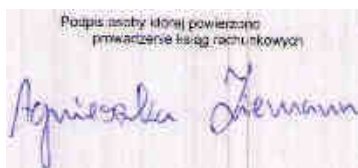 Podpis osoby której powierzono
prowadzenie ksiąg rachunkowych
Agnieszka Ziemann